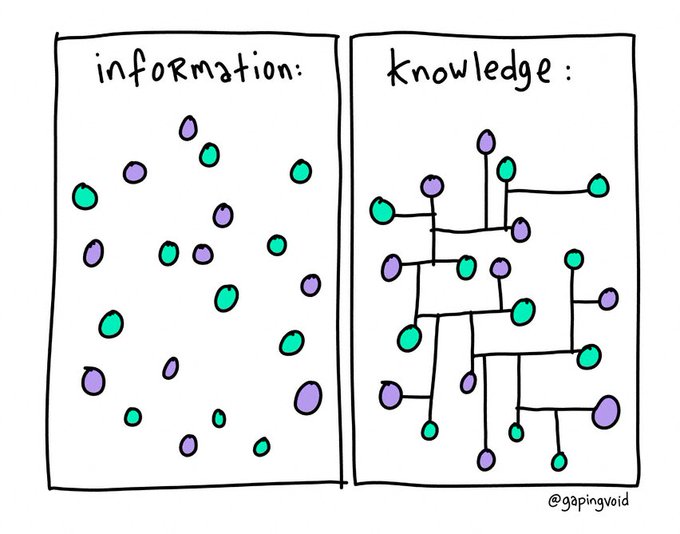 information:
knowledge :
@gapingvoid